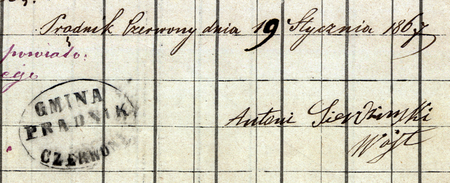 Prądnik Czerwony dnia 19 Stycznia 1867
powiato
ego
GMINA
PRĄDNIK
CZERWONY
Antoni
Wójt